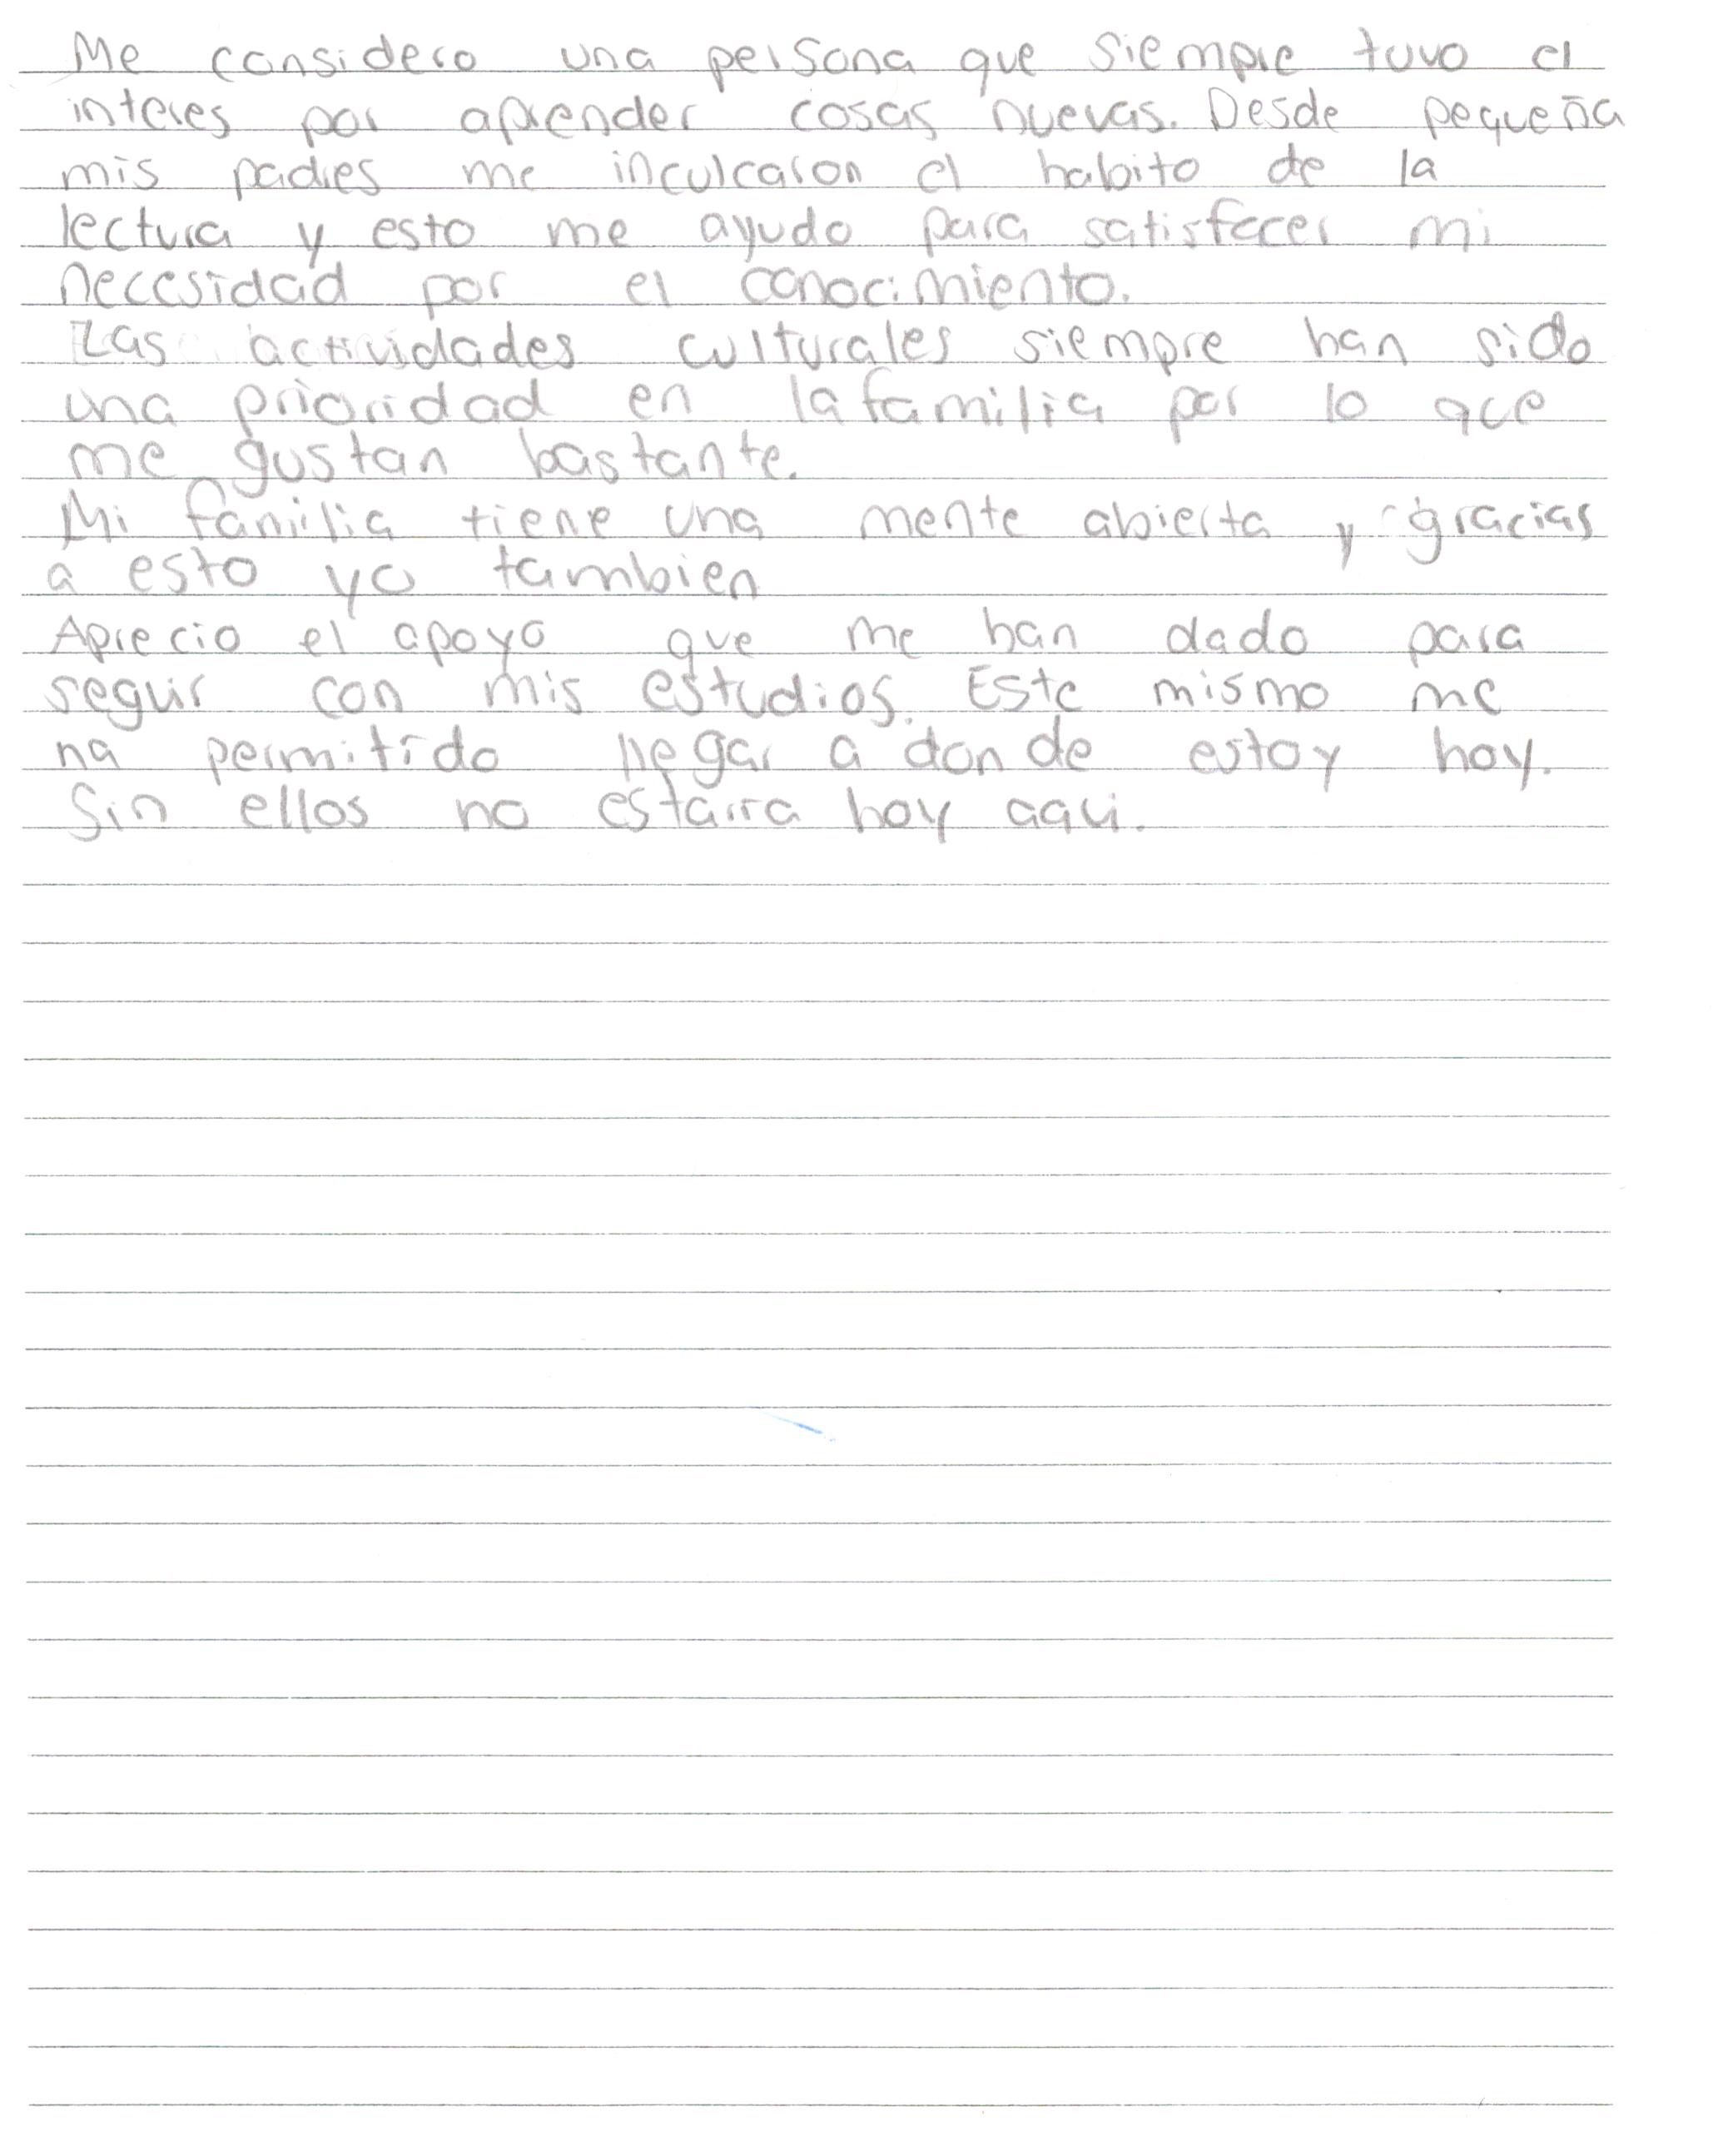 Me considero una persona que siempre tuvo el
interes por aprender cosas nuevas. Desde pequeña
mis padres me inculcaron el habito de la
lectura y esto me ayudo para satisfacer mi
necesidad por el conocimiento.
Las actividades culturales siempre han sido
una prioridad en la familia por lo que
me gustan bastante.
Mi familia tiene una mente abierta y gracias
a esto yo tambien
Aprecio el apoyo que me han dado para
seguir con mis estudios. Este mismo me
ha permitido llegar a donde estoy hoy.
Sin ellos no estaria hoy aqui.